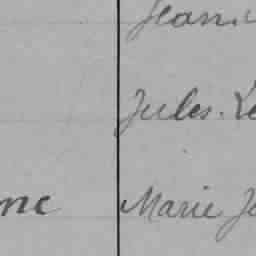 Jean
Jules. Le
ne Marie Jo